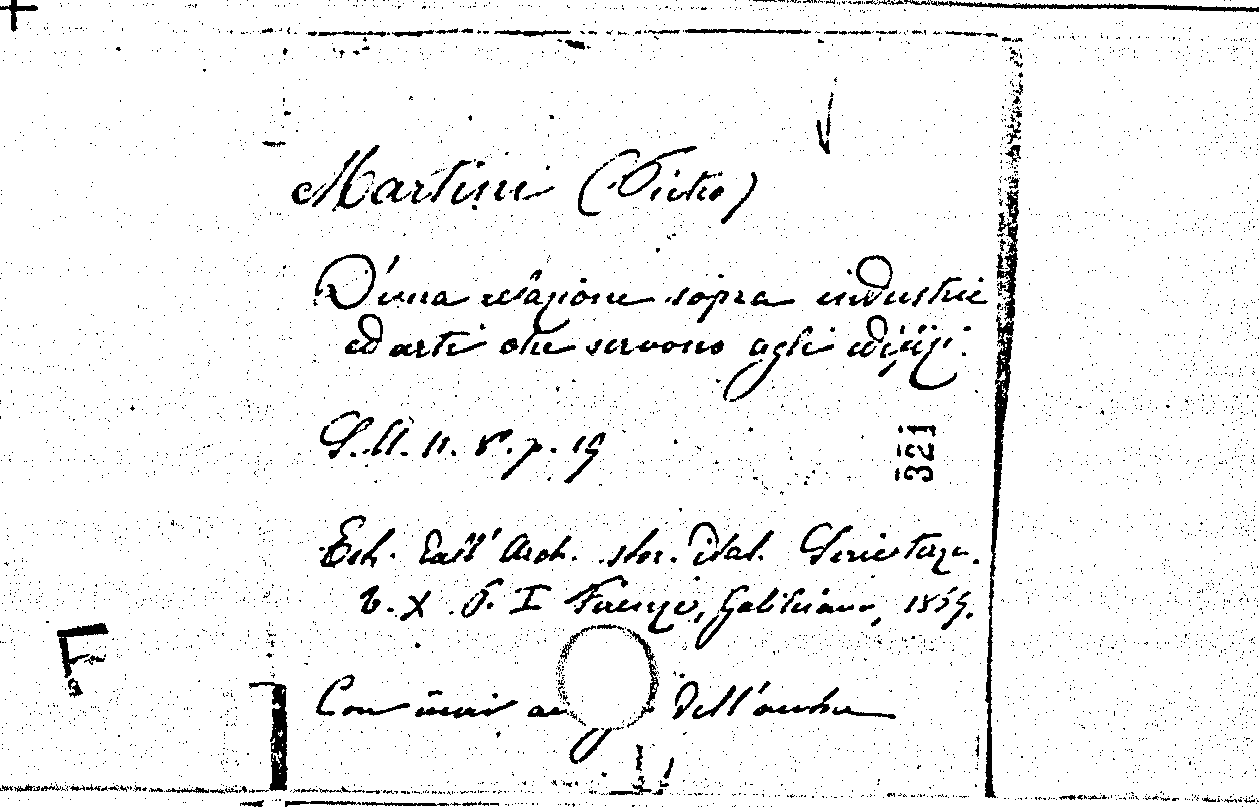 Martini (Pietro)
D'una relazione sopra industrie
ed arti che servono agli edifizi.
S.l. n. 8°. p. 19
Estr. dall' Arch. stor. Ital. Serie terza.
t. X P. I Firenze, Galileiana, 1869.
Con invio dell'autore
321